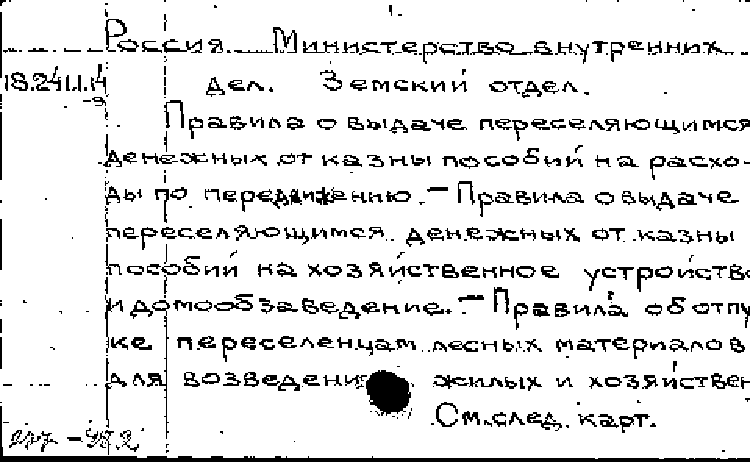 Россия. Министерство внутренних
18.241.1.14 дел. Земский отдел.
-3
Правила о выдаче переселяющимся
денежных от казны пособий на расхо-
ды по передвижению.— Правила о выдаче
переселяющимся денежных от казны
пособий на хозяйственное устройство
и домообзаведение.— Правила об отпу
ке переселенцам лесных материалов
для возведени жилых и хозяйствен
См.след. карт.